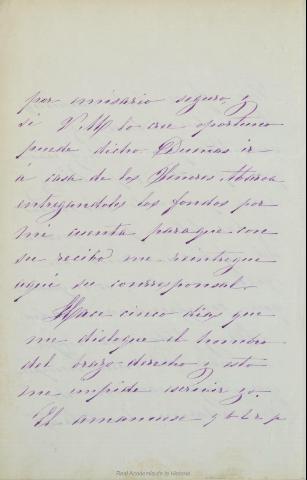 por emisario seguro, y
si V. M. lo cree oportuno
puede dicho Dueñas ir
á casa de los Señores Abaroa
entregandoles los fondos por
mi cuenta para que con
su recibo me reintegue
aqui su corresponsal.
Hace cinco dias que
me disloque el hombro
del brazo derecho y esto
me impide escribir yo.
El amanuese q. b. l. r. p.
Real Academia de la Historia